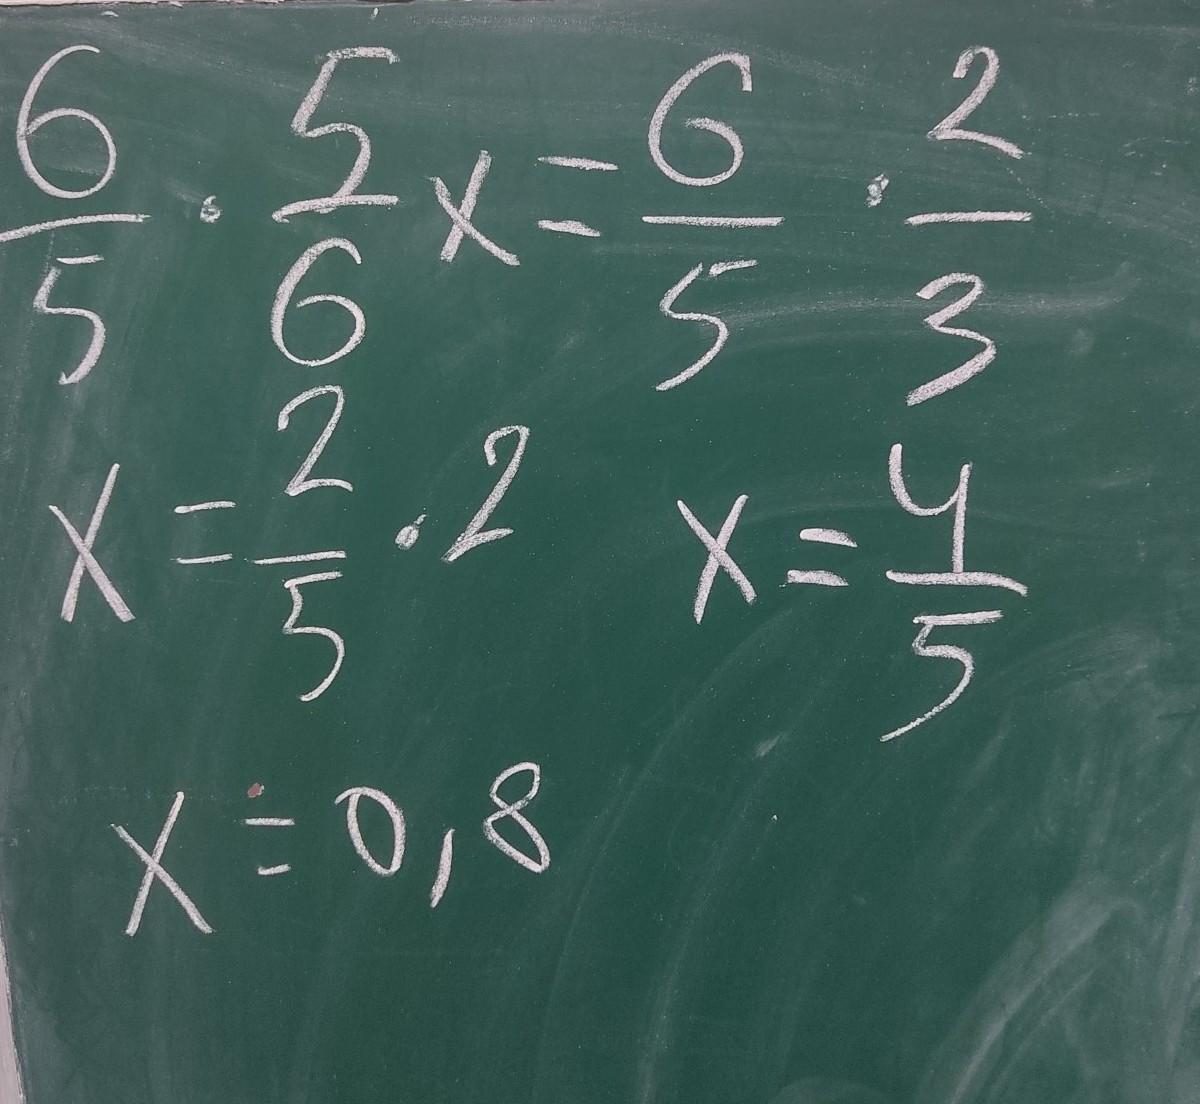 6/5 · 5/6 x = 6/5 · 2/3
x = 2/5 · 2 x = 4/5
x = 0,8